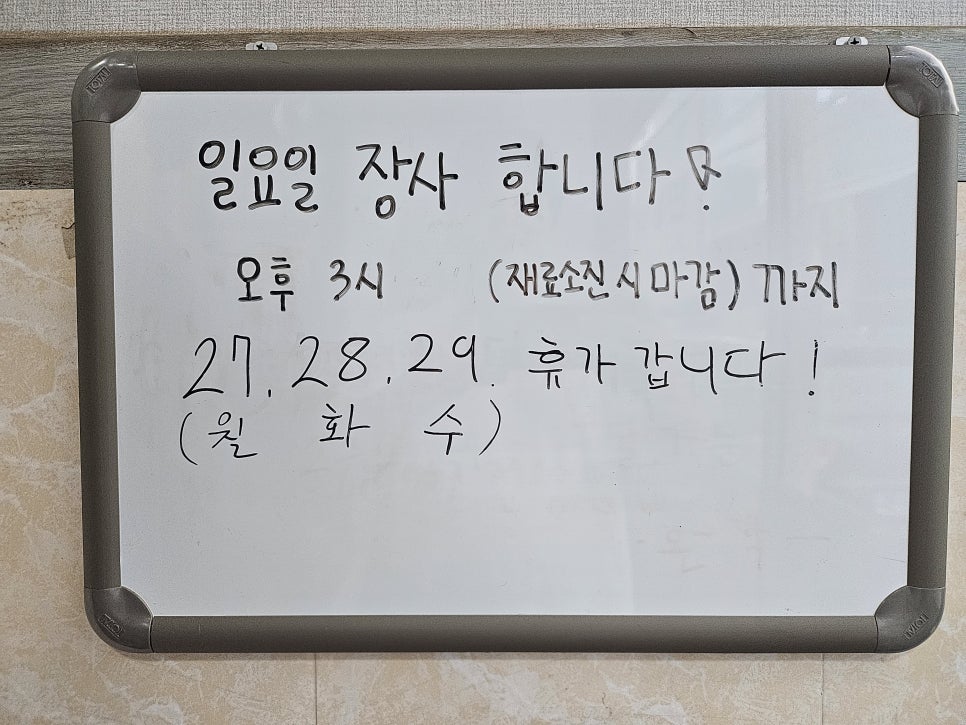 일요일 장사 합니다!
오후 3시 (재료소진 시 마감) 까지
27, 28, 29. 휴가 갑니다!
(월 화 수)